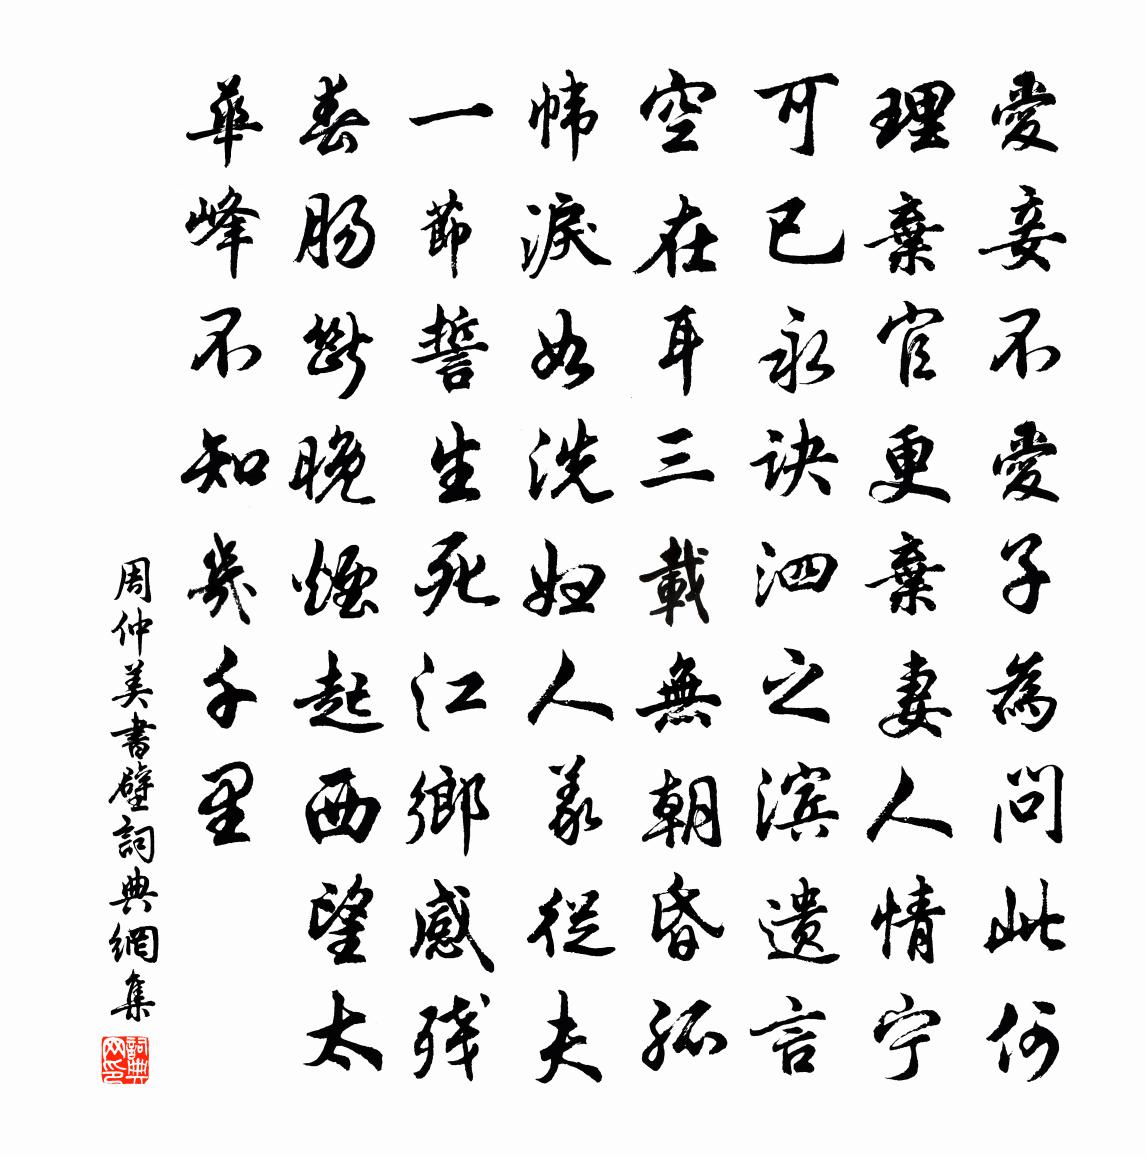 愛妾不愛子為問此何
理棄官更棄妻人情宁
可已永诀泗之滨遗言
空在耳三載無朝昏孤
幃淚如洗妇人義從夫
一節誓生死江鄉感残
春肠斷晚煙起西望太
華峰不知幾千里
周仲美書壁詞典網集
詞典网印